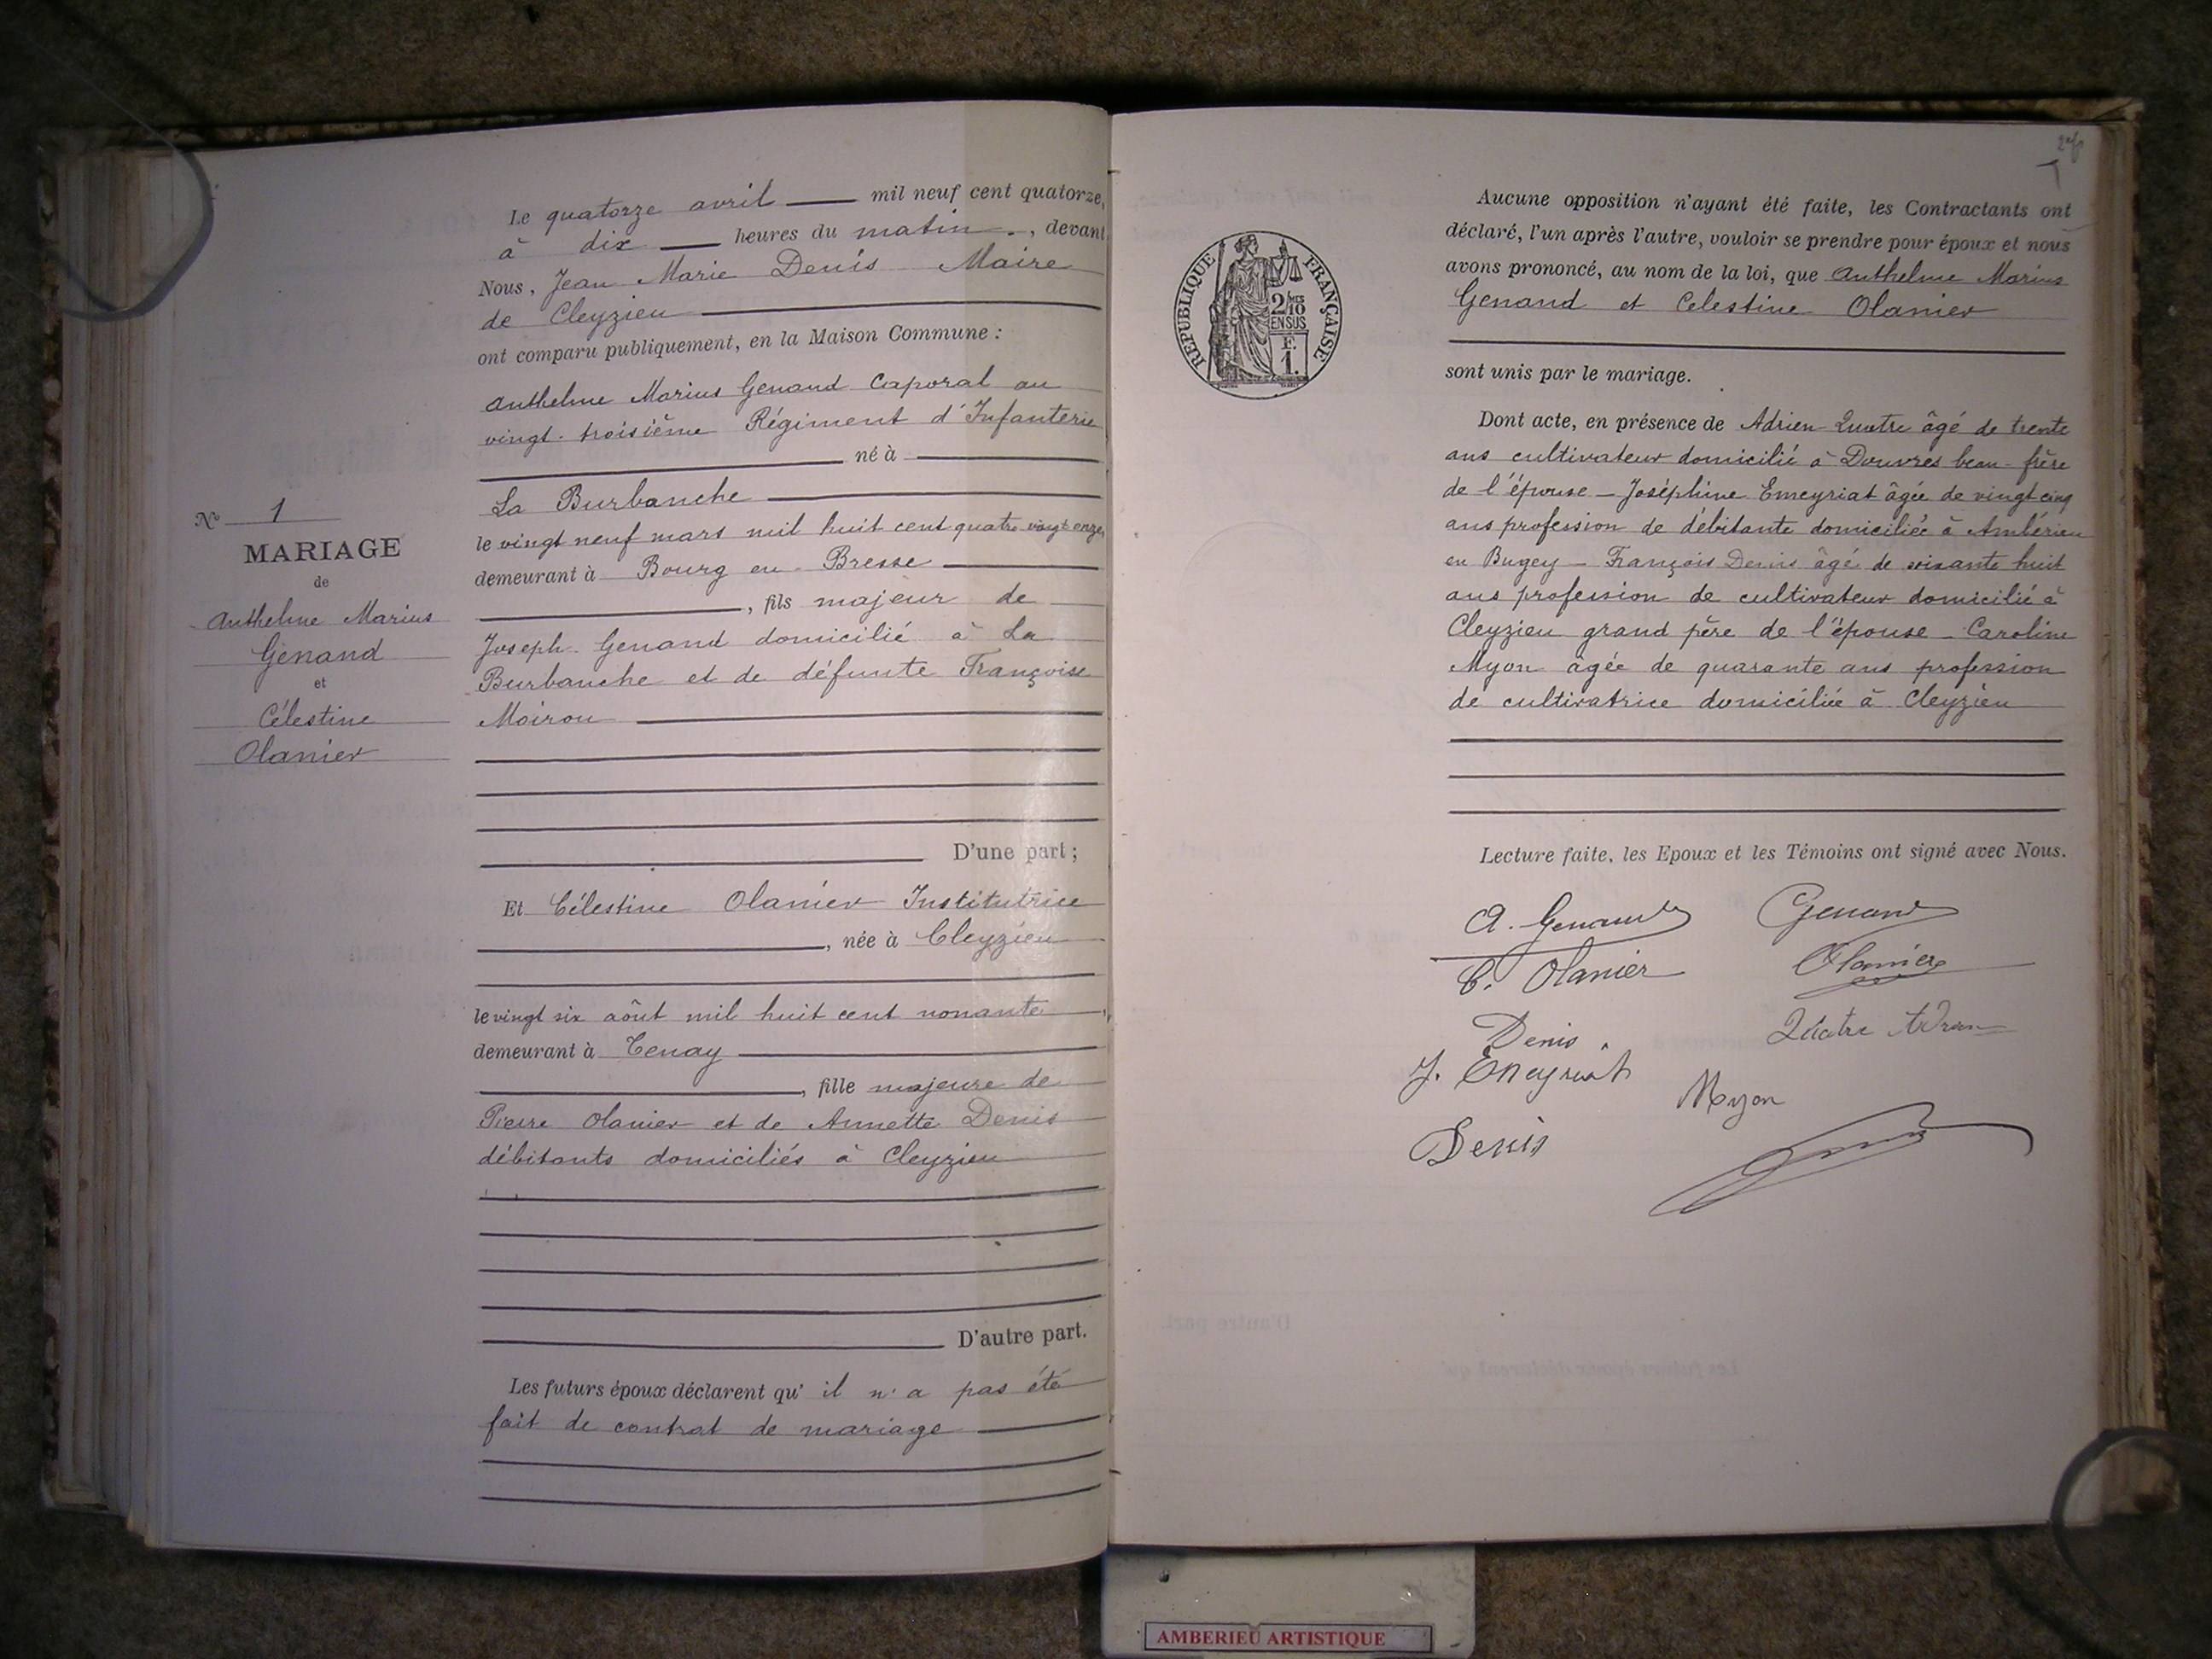 Le quatorze avril mil neuf cent quatorze,
à dix heures du matin, devant
Nous, Jean Marie Denis Maire
de Cleyzieu
ont comparu publiquement, en la Maison Commune :
Anthelme Marius Genand Caporal au
vingt-troisième Régiment d'Infanterie
né à
La Burbanche
le vingt neuf mars mil huit cent quatre vingt onze,
demeurant à Bourg en-Bresse
, fils majeur de
Joseph Genand domicilié à La
Burbanche et de défunte Françoise
Moirou
D'une part ;
Et Célestine Olanier Institutrice
, née à Cleyzieu
le vingt six août mil huit cent nonante,
demeurant à Tenay
, fille majeure de
Pierre Olanier et de Annette Denis
débitants domiciliés à Cleyzieu
D'autre part.
Les futurs époux déclarent qu'il n'a pas été
fait de contrat de mariage
No 1
MARIAGE
de
Anthelme Marius
Genand
et
Célestine
Olanier
RÉPUBLIQUE FRANÇAISE
2/10
EN SUS
F.
1.
Aucune opposition n'ayant été faite, les Contractants ont
déclaré, l'un après l'autre, vouloir se prendre pour époux et nous
avons prononcé, au nom de la loi, que Anthelme Marius
Genand et Celestine Olanier
sont unis par le mariage.
Dont acte, en présence de Adrien Quatre âgé de trente
ans cultivateur domicilié à Douvres beau-frère
de l'épouse – Joséphine Emeyriat âgée de vingt cinq
ans profession de débitante domiciliée à Ambérieu
en Bugey – François Denis âgé de soixante huit
ans profession de cultivateur domicilié à
Cleyzieu grand père de l'épouse – Caroline
Myon âgée de quarante ans profession
de cultivatrice domiciliée à Cleyzieu
Lecture faite, les Epoux et les Témoins ont signé avec Nous.
A. Genand Genand
C. Olanier Olanier
Denis Quatre Adrien
J. Emeyriat Myon
Denis
AMBERIEU ARTISTIQUE